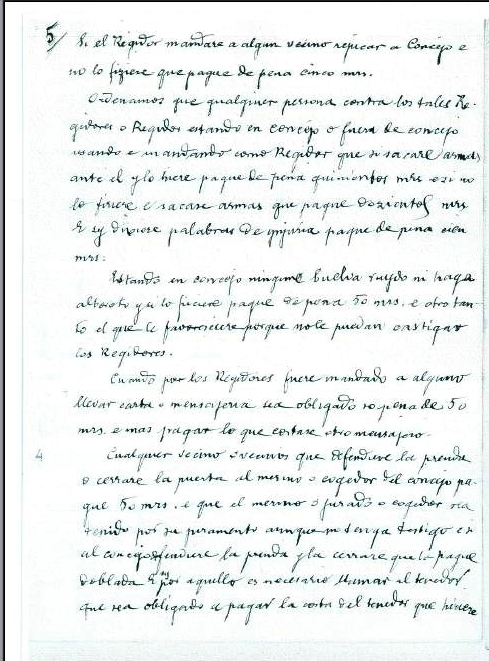 5/ Si el Regidor mandare a algun vecino repicar a Concejo e
no lo fiziere que pague de pena cinco mrs.
Ordenamos que qualquier persona contra los tales Re-
gidores o Regidor estando en concejo o fuera de concejo
usando e mandando como Regidor que si sacare armas
ante el y lo hiere pague de pena quinientos mrs e si no
lo firiere e sacase armas que pague dozientos mrs
E sy dixiere palabras de ynjuria pague de pena cien
mrs.
Estando en concejo ninguno buelva ruydo ni haga
alboroto y si lo ficiere pague de pena 50 mrs. e otro tan-
to el que le favoreciere porque no le puedan castigar
los Regidores.
Cuando por los Regidores fuere mandado a alguno
llevar carta o mensajeria sea obligado so pena de 50
mrs. e mas pagar lo que costare otro mensajero.
4 Cualquer vecino o vecinos que defendiere la prenda
o cerrare la puerta al merino o cogedor del concejo pa-
gue 50 mrs. e que el merino o jurado o cogedor sea
tenido por su juramento aunque no tenga testigo e si
al concejo defendiere la prenda y la cerrare que la pague
doblada E si por aquello es necesario llamar al tenedor
que sea obligado a pagar la costa del tenedor que hiciere